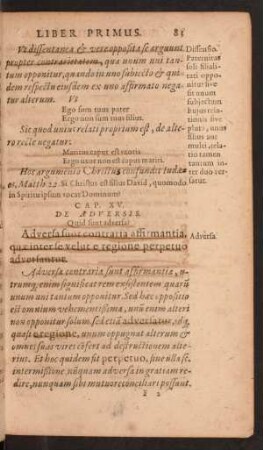 LIBER PRIMUS. 81
Ut dissentanea & vere opposita se arguunt
propter contrarietatem, qua unum uni tan-
tum opponitur, quando in uno subiecto & qui-
dem respectu eiusdem ex uno affirmato nega-
tur alterum. Ut
Ego sum tuus pater
Ergo non sum tuus filius.
Sic quod unius relati proprium est, de alte-
ro recte negatur:
Maritus caput est uxoris
Ergo uxor non est caput mariti.
Hoc argumento Christus confundit Iudæ-
os, Matth. 22. Si Christus est filius David, quomodo
in Spiritu ipsum vocat Dominum?
CAP. XV.
DE ADVERSIS.
Quid sunt adversa?
Adversa sunt contraria affirmantia,
quæ inter se velut e regione perpetuo
adversantur.
Adversa contraria, sunt affirmantia, u-
trumq; enim significat rem existentem, quarū
unum uni tantum opponitur. Sed hæc oppositio
est omnium vehementissima, unū enim alteri
non opponitur solum, sed etiā adversatur, idq;
quasi e regione, unum oppugnat alterum &
omnes suas vires effert ad destructionem alte-
rius. Et hoc quidem fit perpetuo, sine ulla se.
intermissione nūquam adversa in gratiam re-
dire, nunquam sibi mutuo reconciliari possunt.
Dissensio.
Paternitas
soli filiali-
tati oppo-
nitur sive
sit unum
subjectum
Adversa